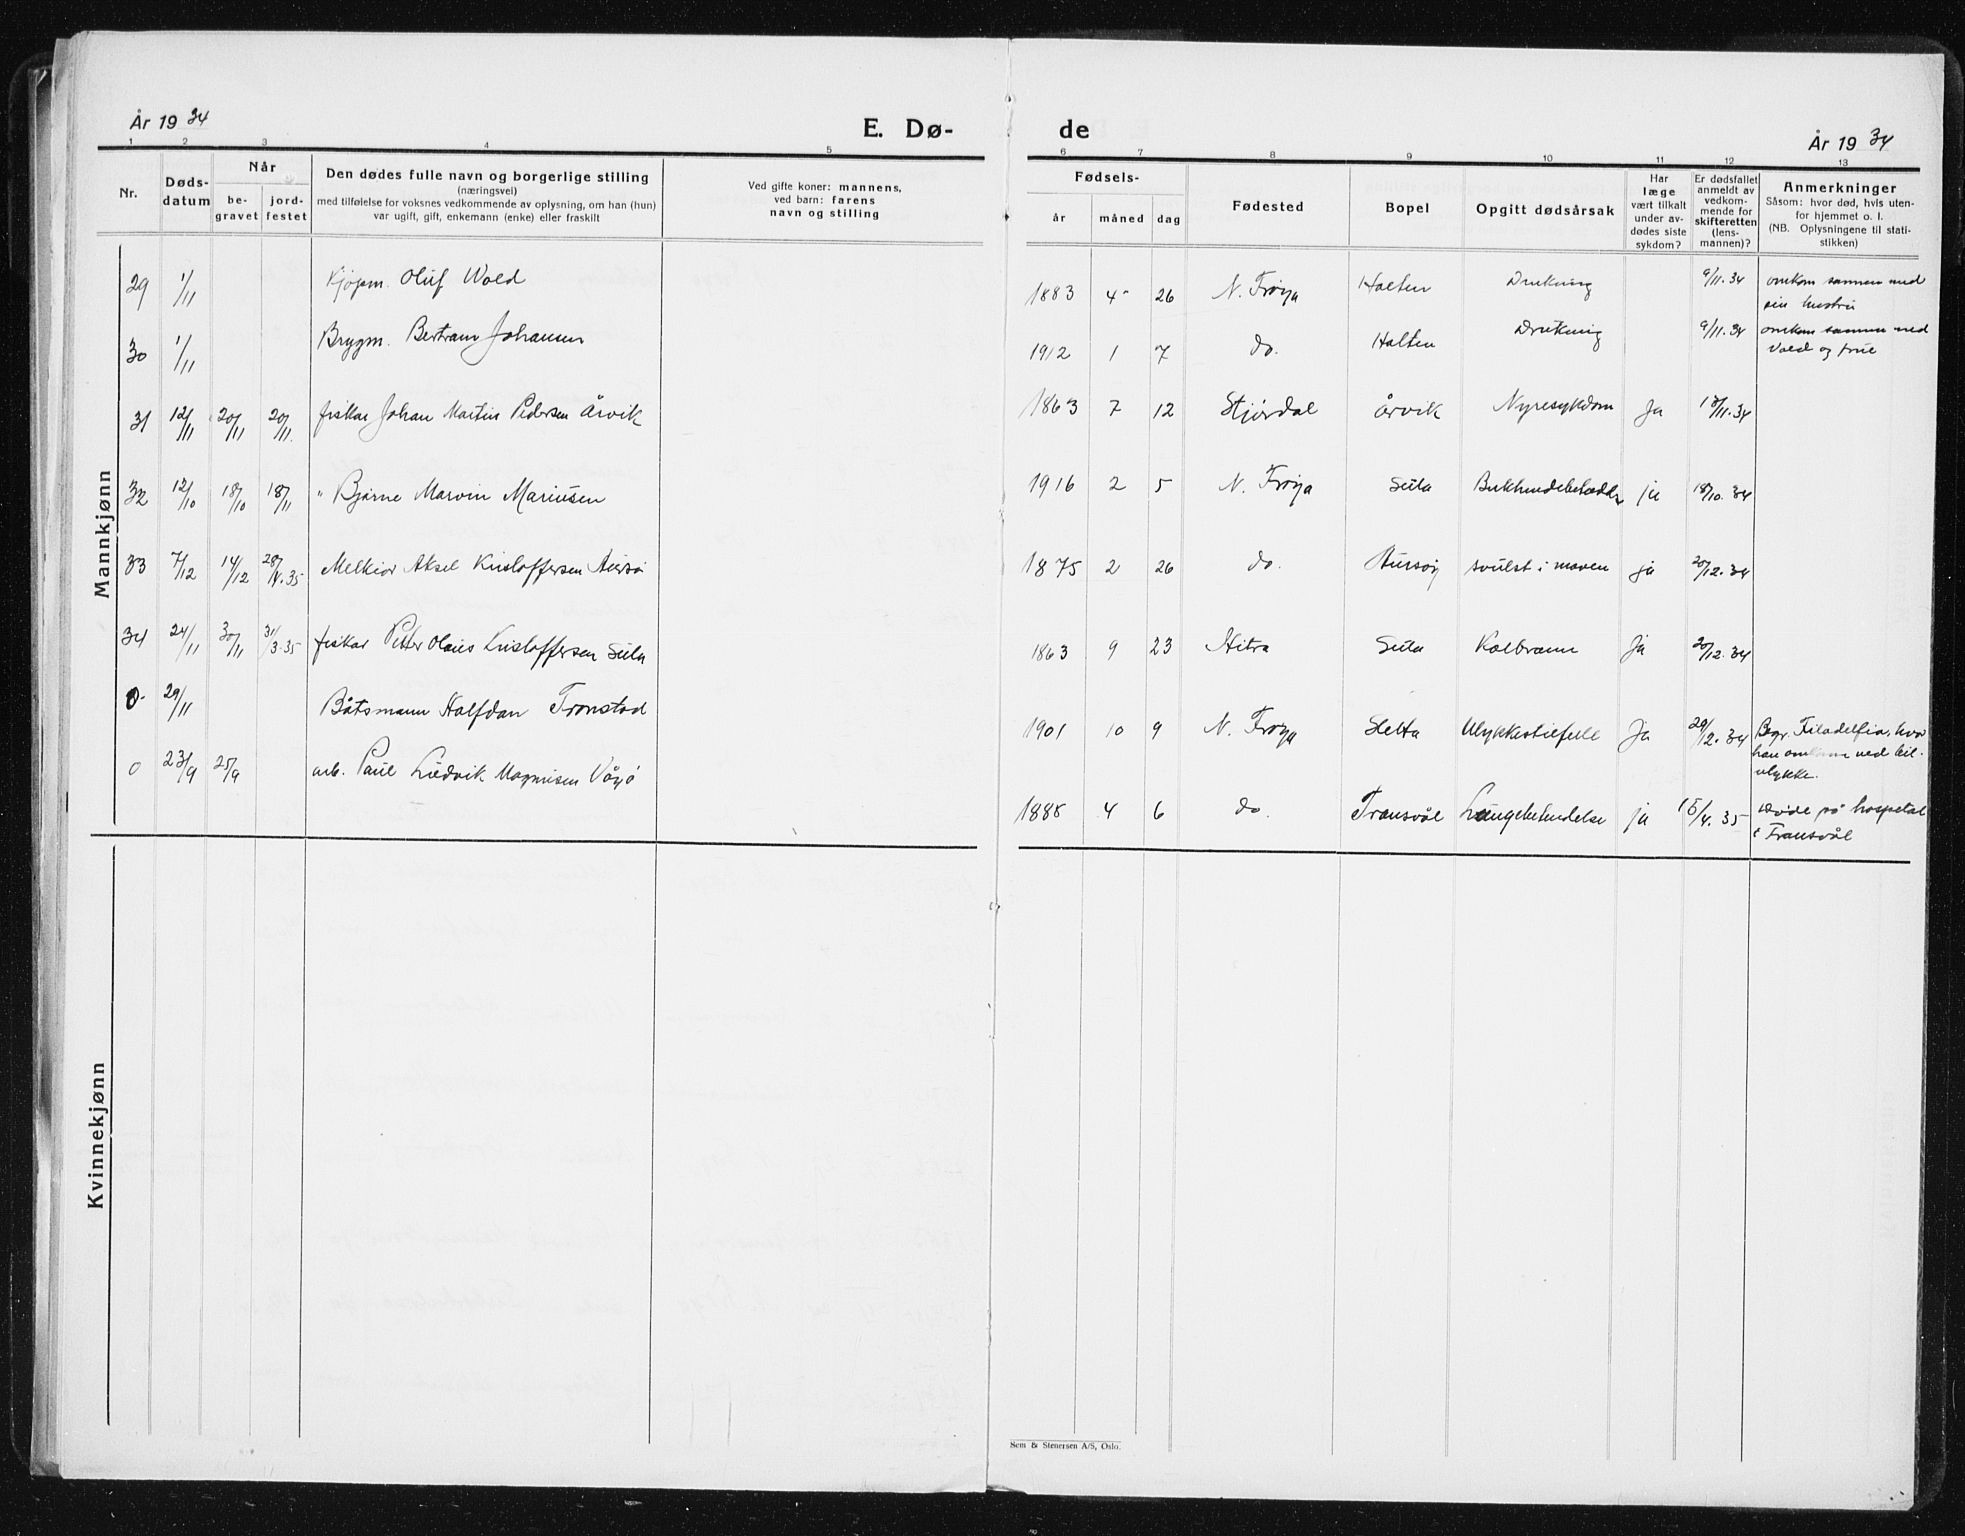 År 1934
E. Dø-
de
År 1934
1 2 3 4 5 6 7 8 9 10 11 12 13
Nr.
Døds-
datum
Når
be-
gravet
jord-
festet
Den dødes fulle navn og borgerlige stilling
(næringsvei)
med tilføielse for voksnes vedkommende av oplysning, om han (hun)
var ugift, gift, enkemann (enke) eller fraskilt
Ved gifte koner: mannens,
ved barn: farens
navn og stilling
Fødsels-
år måned dag
Fødested
Bopel
Opgitt dødsårsak
Har
læge
vært tilkalt
under av-
dødes siste
sykdom?
Er dødsfallet
anmeldt av
vedkom-
mende for
skifteretten
(lens-
mannen)?
Anmerkninger
Såsom: hvor død, hvis uten-
for hjemmet o. l.
(NB. Oplysningene til stati-
stikken)
Mannkjønn
29 1/11 Kjøpm. Oluf Wold 1883 4 26 N. Frøya Halten Drukning 9/11.34 omkom sammen med
sin hustru
30 1/11 Brygm. Bertram Johansen 1912 1 7 do. Halten Drukning 9/11.34 omkom sammen med
Vold og frue
31 12/11 20/11 20/11. fiskar Johan Martin Pedersen Årvik 1863 7 12 Stjørdal Årvik Nyresykdom Ja 13/11.34
32 12/10 18/10 18/11 " Bjarne Marvin Mariusen 1916 2 5 N. Frøya Sula ja 18/10.34
33 7/12 14/12 28/4.35 Melkior Aksel Kristoffersen 1875 2 26 do. svulst i maven ja 20/12.34
34 24/11 30/11 31/3.35 fiskar Petter Olaus Kristoffersen Sula 1863 9 23 Hitra Sula Kolbrann Ja 20/12.34
0. 29/11 Båtsmann Halfdan Tronstad 1901 10 9 N. Frøya Sletta Ulykkestilfelle Ja 29/12.34 Begr. Filadelfia, hvor
han omkom ved bil-
ulykke.
0 23/9 25/9 arb. Paul Ludvik Magnusen Vågø 1888 4 6 do. Transvål Lungebetendelse ja 15/4.35 Døde på hospetal
i Transvål
Kvinnekjønn
Sem & Stenersen A/S, Oslo.